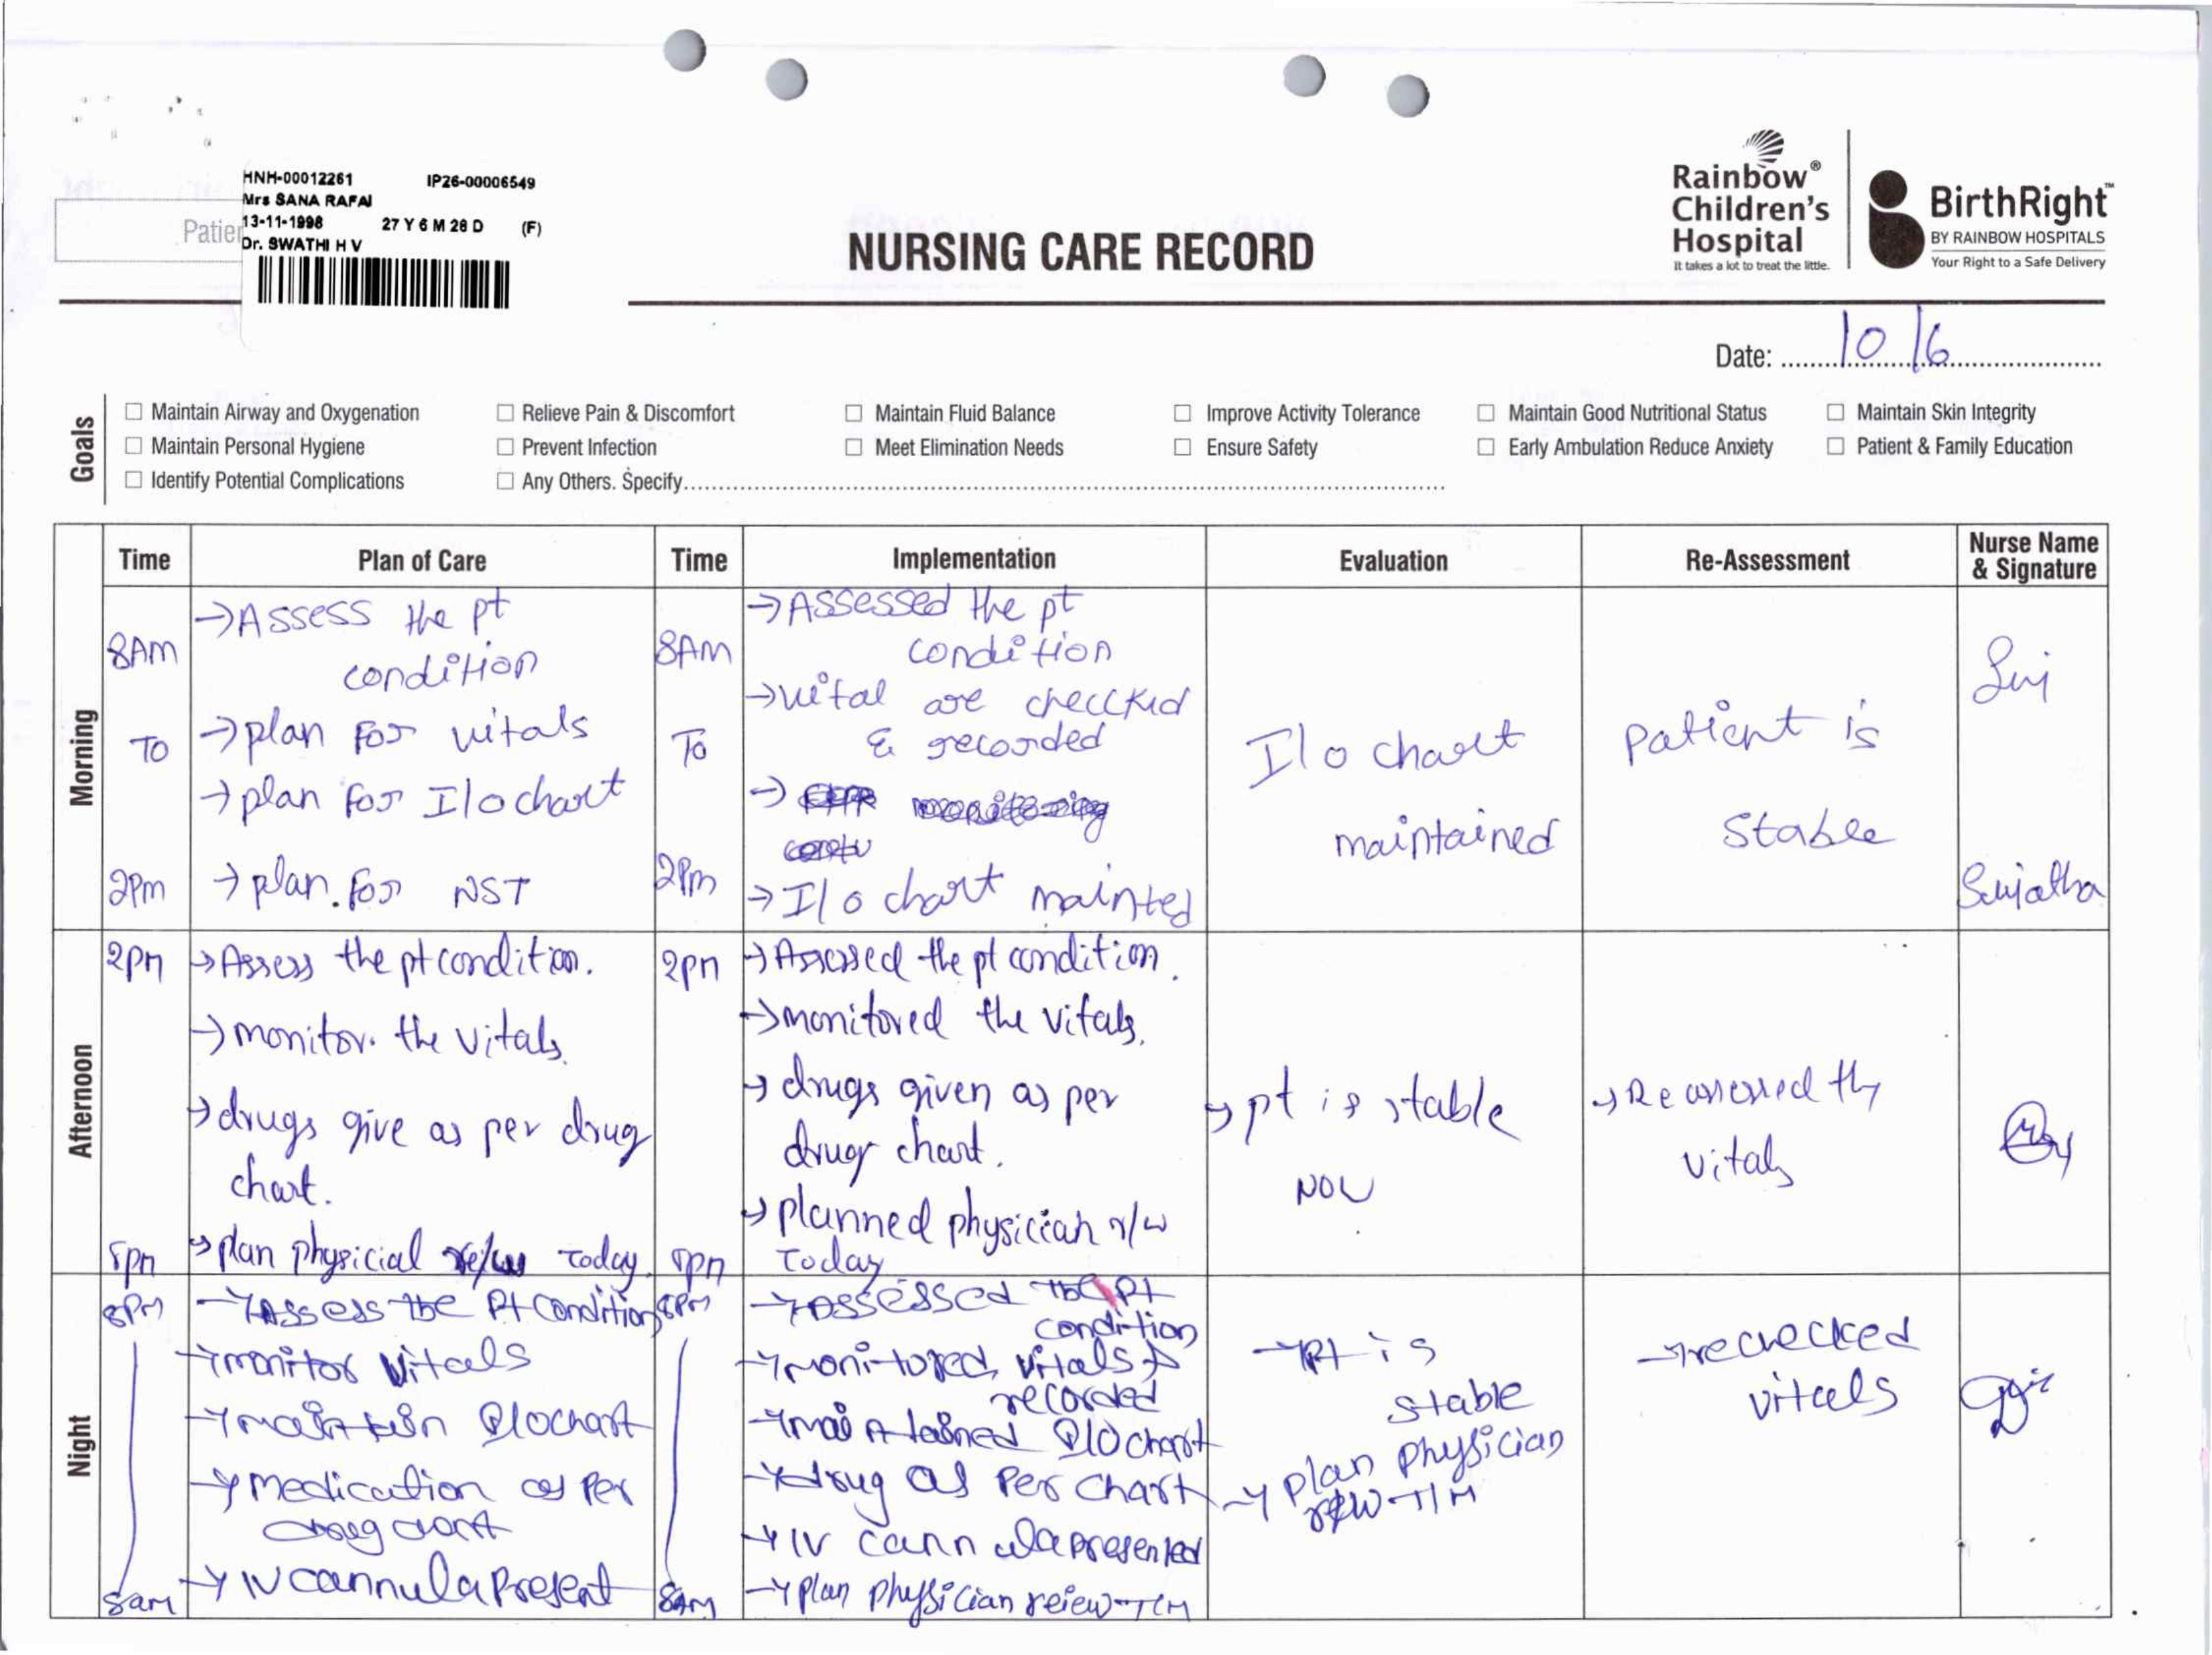 HNH-00012261 IP26-00006549
Mrs SANA RAFAI
13-11-1998 27 Y 6 M 28 D (F)
Dr. SWATHI H V
Patie
NURSING CARE RECORD
Rainbow®
Children's
Hospital
It takes a lot to treat the little.
BirthRight™
BY RAINBOW HOSPITALS
Your Right to a Safe Delivery
Date: 10/6
Goals
☐ Maintain Airway and Oxygenation ☐ Relieve Pain & Discomfort ☐ Maintain Fluid Balance ☐ Improve Activity Tolerance ☐ Maintain Good Nutritional Status ☐ Maintain Skin Integrity
☐ Maintain Personal Hygiene ☐ Prevent Infection ☐ Meet Elimination Needs ☐ Ensure Safety ☐ Early Ambulation Reduce Anxiety ☐ Patient & Family Education
☐ Identify Potential Complications ☐ Any Others. Specify
Time Plan of Care Time Implementation Evaluation Re-Assessment Nurse Name & Signature
Morning
8AM
To
2pm
→ Assess the pt
condition
→ plan for vitals
→ plan for I/o chart
→ plan. for NST
8AM
To
2pm
→ Assessed the pt
condition
→ vital are checckud
& recorded
→ I/o chart mainted
I/o chart
maintained
patient is
stable
Suj
Sujatha
Afternoon
2pm
8pm
→ Assess the pt condition.
→ monitor. the vitals.
→ drugs give as per drug
chart.
→ plan physicial today.
2pm
8pm
→ Assessed the pt condition.
→ monitored the vitals.
→ drugs given as per
drug chart.
→ planned physician r/w
today
→ pt is stable
now
→ Reassessed the
vitals
Night
8PM
8am
→ Assess the Pt condition
→ monitor vitals
→ maintain I/o chart
→ medication as per
drug chart
→ IV cannula present
8PM
8AM
→ assessed the Pt
condition
→ monitored vitals &
recorded
→ maintained I/O chart
→ drug as per chart
→ IV cannula presented
→ plan physician reiew T/M
→ Pt is
stable
→ plan physician
T/M
→ rechecked
vitals